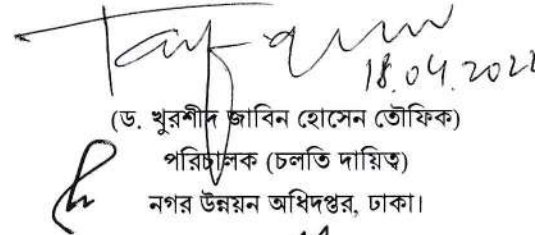 18.04.2022
(ড. খুরশীদ জাবিন হোসেন তৌফিক)
পরিচালক (চলতি দায়িত্ব)
নগর উন্নয়ন অধিদপ্তর, ঢাকা।